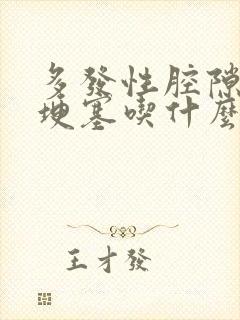 多發性腔隙
埂塞喫什麼
王才發